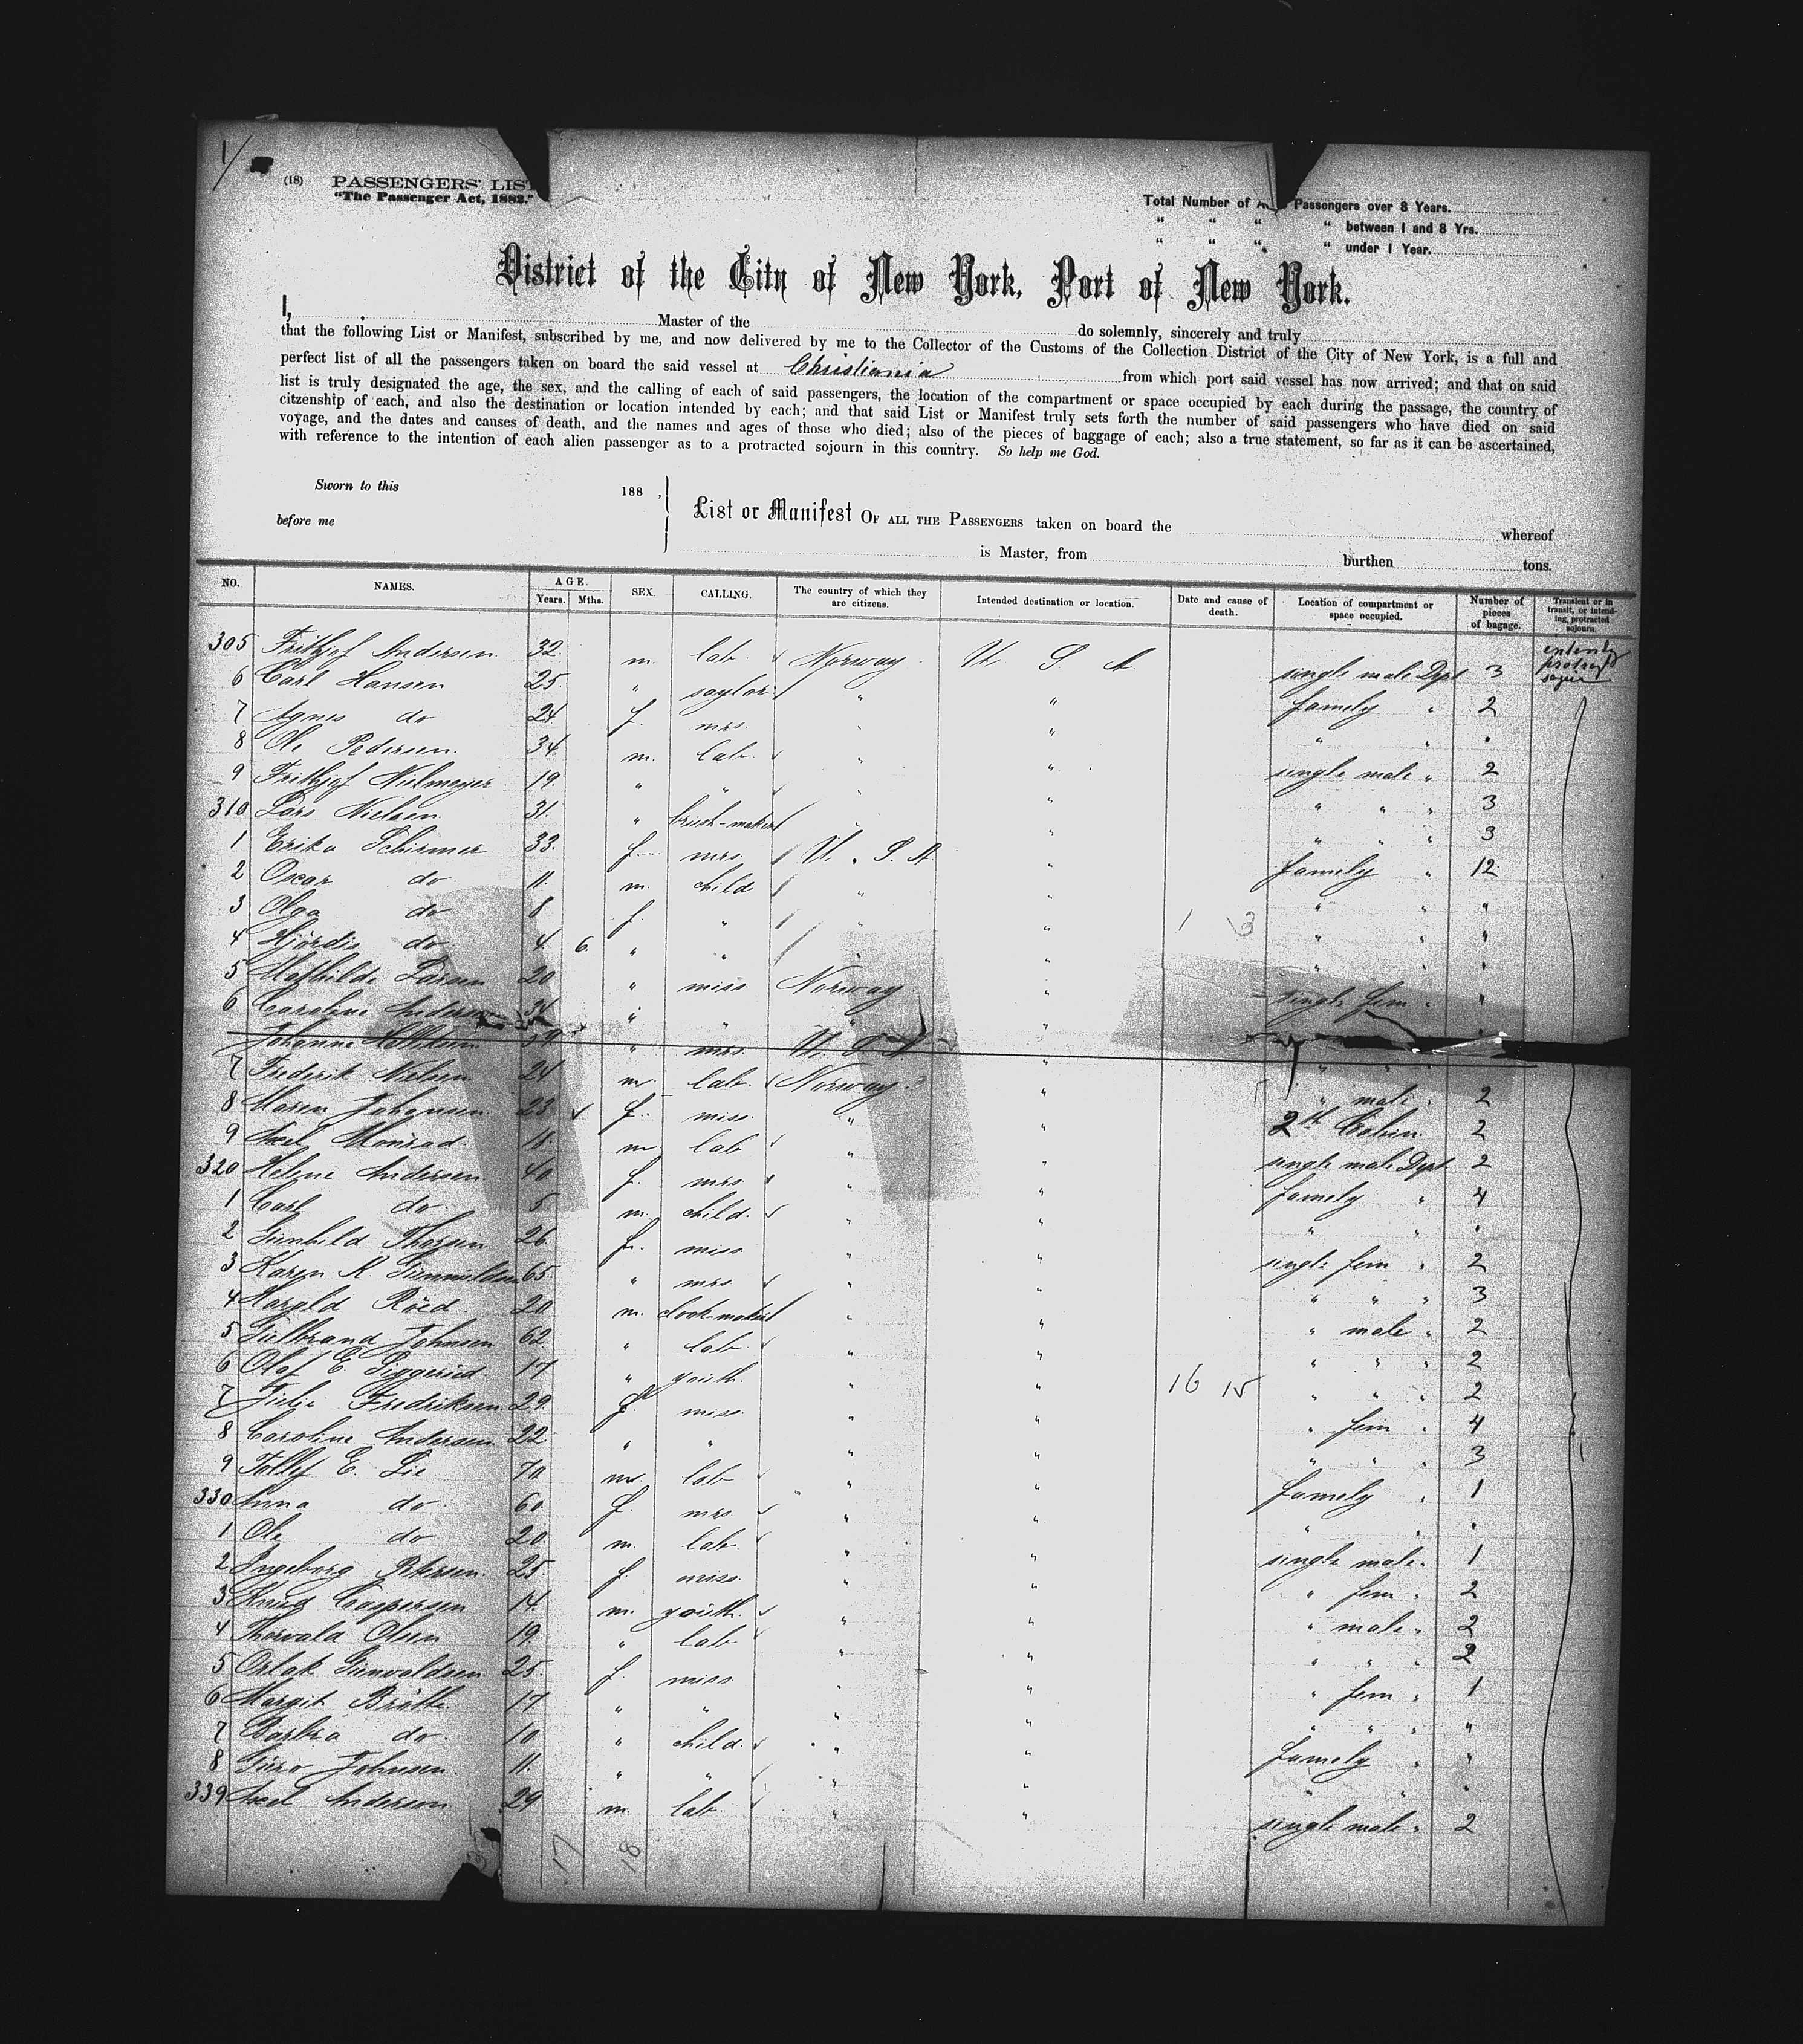 1/
(18) PASSENGERS' LIST
"The Passenger Act, 1882."
Total Number of Passengers over 8 Years.
" " " " between 1 and 8 Yrs.
" " " " under 1 Year.
District of the City of New York, Port of New York.
I, Master of the do solemnly, sincerely and truly
that the following List or Manifest, subscribed by me, and now delivered by me to the Collector of the Customs of the Collection District of the City of New York, is a full and
perfect list of all the passengers taken on board the said vessel at Christiania from which port said vessel has now arrived; and that on said
list is truly designated the age, the sex, and the calling of each of said passengers, the location of the compartment or space occupied by each during the passage, the country of
citzenship of each, and also the destination or location intended by each; and that said List or Manifest truly sets forth the number of said passengers who have died on said
voyage, and the dates and causes of death, and the names and ages of those who died; also of the pieces of baggage of each; also a true statement, so far as it can be ascertained,
with reference to the intention of each alien passenger as to a protracted sojourn in this country. So help me God.
Sworn to this 188 ,
before me
List or Manifest OF ALL THE PASSENGERS taken on board the whereof
is Master, from burthen tons.
NO. NAMES. AGE. Years. Mths. SEX. CALLING. The country of which they are citizens. Intended destination or location. Date and cause of death. Location of compartment or space occupied. Number of pieces of bagage. Transient or in transit, or intending, protracted sojourn.
305 Frithjof Andersen 32 m. lab. Norway U S A single male Dept 3
6 Carl Hansen 25 " saylor " " famely " 2
7 Agnes do 24 f. mrs. " " " " "
8 Ole Pedersen 34 m. lab. " " single male " 2
9 Frithjof Nielmeyer 19 " " " " " " " 3
310 Lars Nielsen 31 " brush-maker " " " " " 3
1 Erika Schirmer 33 f. mrs U. S. A " famely " 12
2 Oscar do 11 m. child " " " " "
3 Olga do 8 f. " " " 1 3 " " "
4 Hjördis do 4 6 " " " " " " "
5 Mathilde Larsen 20 " miss Norway " single fem " "
6 Caroline Andersen " " " "
Johanne 39 " mrs. U. S. A " " " "
7 Frederik Nielsen 24 m. lab. Norway " " male " 2
8 Maren Johansen 23 f. miss. " " 2th Cabin 2
9 Axel Monrad 11 m lab " " single male Dept 2
320 Helene Andersen 40 f. mrs " " famely " 4
1 Carl do 5 m. child. " " " " "
2 Gunhild Thorsen 26 f. miss " " single fem " 2
3 Karen K. Gunnuldsen 65 " mrs " " " " " 3
4 Harald Röed 20 m. clock-maker " " " male " 2
5 Gulbrand Johnsen 62 " lab. " " " " " 2
6 Olof E. Siggerud 17 " youth. " " 16 15 " " " 2
7 Julie Fredriksen 29 f. miss. " " " fem " 4
8 Caroline Andersen 22 " " " " " " " 3
9 Tollef E. Lie 70 m. lab " " famely " 1
330 Anna do 60 f. mrs " " " " "
1 Ole do 20 m. lab. " " single male " 1
2 Ingeborg Petersen 25 f. miss. " " " fem " 2
3 Knud Caspersen 14 m. youth. " " " male " 2
4 Thorvald Olsen 19 " lab " " " " " 2
5 Gunvaldsen 25 f. miss " " " fem " 1
6 Margit Bråthe 17 " " " " " " " "
7 Barbra do 10 " child. " " famely " "
8 Guro Johnsen 11 " " " " " " "
339 Axel Anderson 29 m. lab. " " single male " 2
17 18